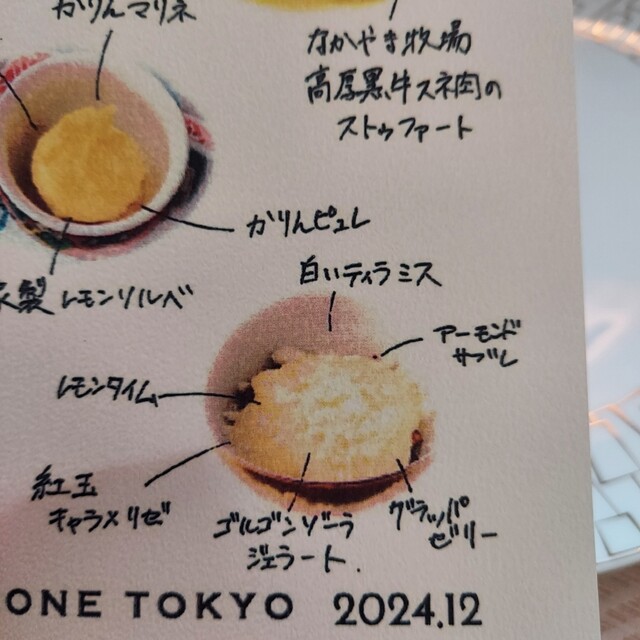 かりんマリネ
なかやま牧場
高原黒牛スネ肉の
ストゥファート
かりんピュレ
製 レモンリルベ
白いティラミス
アーモンド
サブレ
レモンタイム
紅玉
キャラメリゼ
ゴルゴンゾーラ
ジェラート.
グラッパ
ゼリー
ONE TOKYO 2024.12